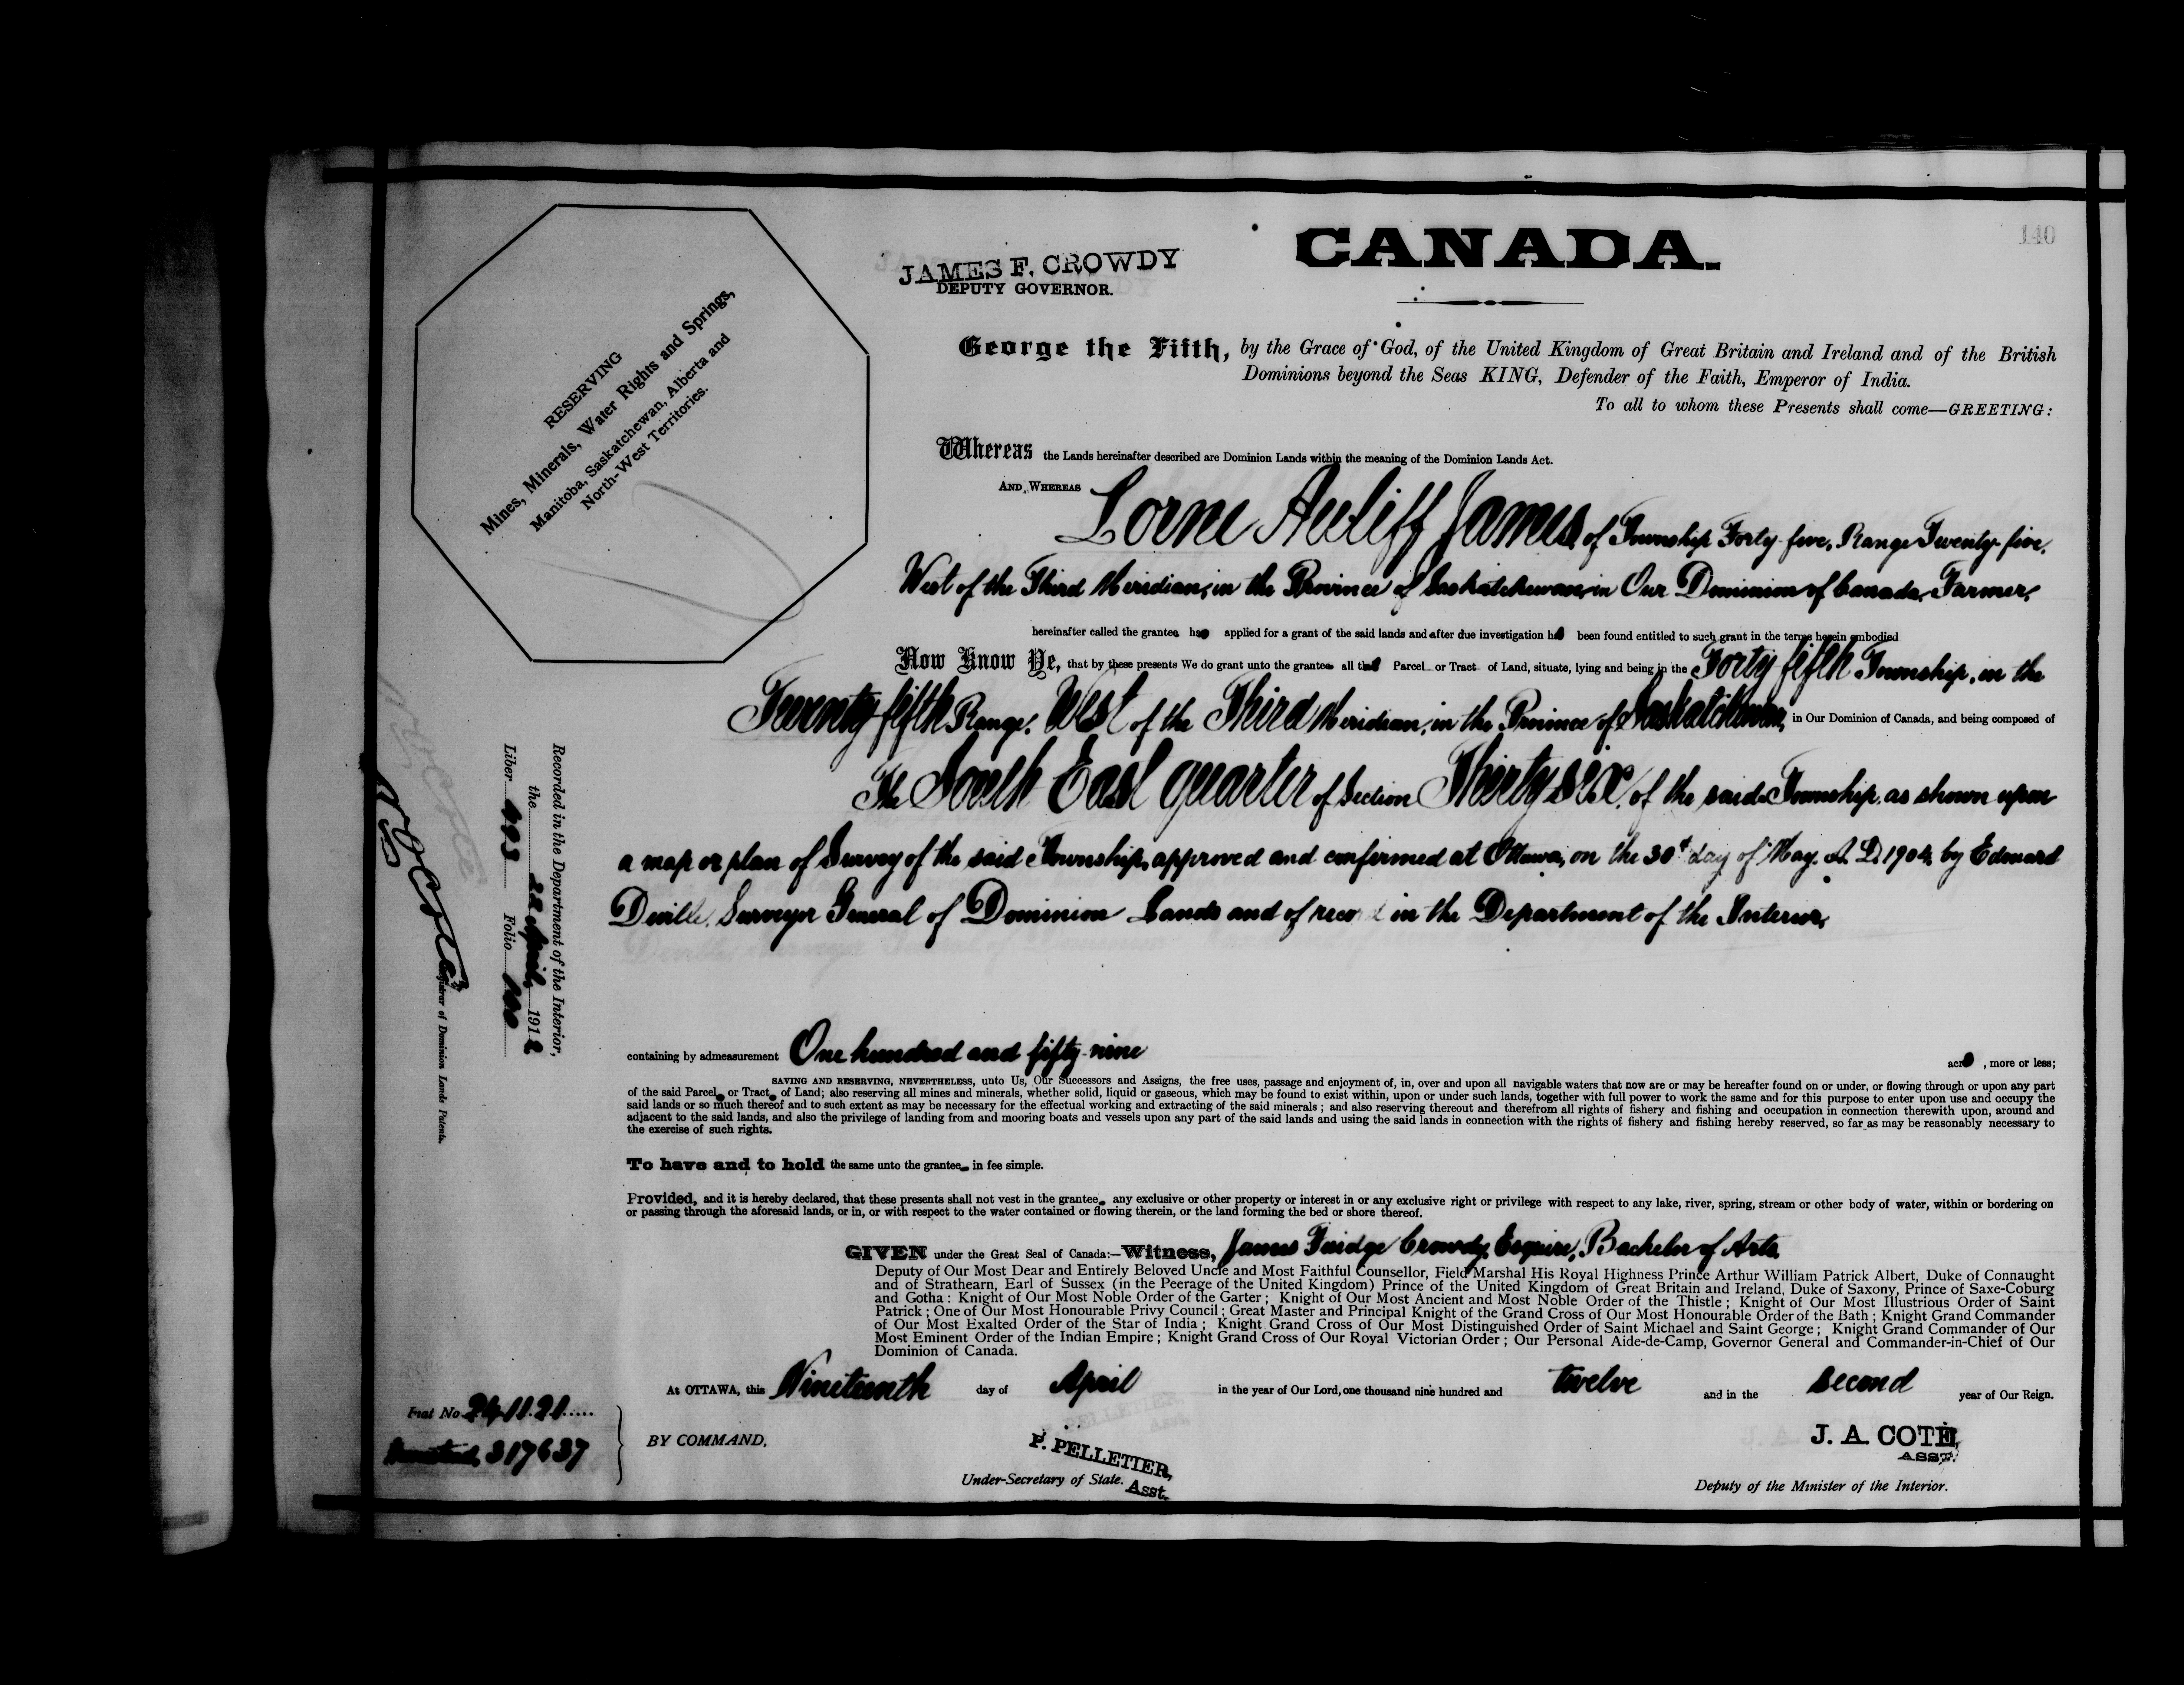 140
CANADA.
JAMES F. CROWDY
DEPUTY GOVERNOR.
RESERVING
Mines, Minerals, Water Rights and Springs,
Manitoba, Saskatchewan, Alberta and
North-West Territories.
George the Fifth, by the Grace of God, of the United Kingdom of Great Britain and Ireland and of the British
Dominions beyond the Seas KING, Defender of the Faith, Emperor of India.
To all to whom these Presents shall come—GREETING:
Whereas the Lands hereinafter described are Dominion Lands within the meaning of the Dominion Lands Act.
AND WHEREAS Lorne Auliff James, of Township Forty-five, Range Twenty-five,
West of the Third Meridian, in the Province of Saskatchewan, in Our Dominion of Canada, Farmer,
hereinafter called the grantee has applied for a grant of the said lands and after due investigation has been found entitled to such grant in the terms herein embodied
Now Know Ye, that by these presents We do grant unto the grantee all that Parcel or Tract of Land, situate, lying and being in the Forty fifth Township, in the
Twenty fifth Range, West of the Third Meridian, in the Province of Saskatchewan, in Our Dominion of Canada, and being composed of
The South East quarter of Section Thirty six, of the said Township, as shown upon
a map or plan of Survey of the said Township, approved and confirmed at Ottawa, on the 30th day of May, A. D. 1904, by Edouard
Deville, Surveyor General of Dominion Lands and of record in the Department of the Interior,
Recorded in the Department of the Interior,
the 22 April, 1912
Liber 493 Folio 140
N O Coté
Registrar of Dominion Lands Patents.
containing by admeasurement One hundred and fifty-nine acres, more or less;
SAVING AND RESERVING, NEVERTHELESS, unto Us, Our Successors and Assigns, the free uses, passage and enjoyment of, in, over and upon all navigable waters that now are or may be hereafter found on or under, or flowing through or upon any part
of the said Parcel or Tract of Land; also reserving all mines and minerals, whether solid, liquid or gaseous, which may be found to exist within, upon or under such lands, together with full power to work the same and for this purpose to enter upon use and occupy the
said lands or so much thereof and to such extent as may be necessary for the effectual working and extracting of the said minerals; and also reserving thereout and therefrom all rights of fishery and fishing and occupation in connection therewith upon, around and
adjacent to the said lands, and also the privilege of landing from and mooring boats and vessels upon any part of the said lands and using the said lands in connection with the rights of fishery and fishing hereby reserved, so far as may be reasonably necessary to
the exercise of such rights.
To have and to hold the same unto the grantee in fee simple.
Provided, and it is hereby declared, that these presents shall not vest in the grantee any exclusive or other property or interest in or any exclusive right or privilege with respect to any lake, river, spring, stream or other body of water, within or bordering on
or passing through the aforesaid lands, or in, or with respect to the water contained or flowing therein, or the land forming the bed or shore thereof.
GIVEN under the Great Seal of Canada:—Witness, James Fuidge Crowdy, Esquire, Bachelor of Arts,
Deputy of Our Most Dear and Entirely Beloved Uncle and Most Faithful Counsellor, Field Marshal His Royal Highness Prince Arthur William Patrick Albert, Duke of Connaught
and of Strathearn, Earl of Sussex (in the Peerage of the United Kingdom) Prince of the United Kingdom of Great Britain and Ireland, Duke of Saxony, Prince of Saxe-Coburg
and Gotha: Knight of Our Most Noble Order of the Garter; Knight of Our Most Ancient and Most Noble Order of the Thistle; Knight of Our Most Illustrious Order of Saint
Patrick; One of Our Most Honourable Privy Council; Great Master and Principal Knight of the Grand Cross of Our Most Honourable Order of the Bath; Knight Grand Commander
of Our Most Exalted Order of the Star of India; Knight Grand Cross of Our Most Distinguished Order of Saint Michael and Saint George; Knight Grand Commander of Our
Most Eminent Order of the Indian Empire; Knight Grand Cross of Our Royal Victorian Order; Our Personal Aide-de-Camp, Governor General and Commander-in-Chief of Our
Dominion of Canada.
At OTTAWA, this Nineteenth day of April in the year of Our Lord, one thousand nine hundred and twelve and in the second year of Our Reign.
Fiat No. 241121
317637
BY COMMAND,
P. PELLETIER,
Under-Secretary of State. Asst.
J. A. COTÉ,
ASST.
Deputy of the Minister of the Interior.